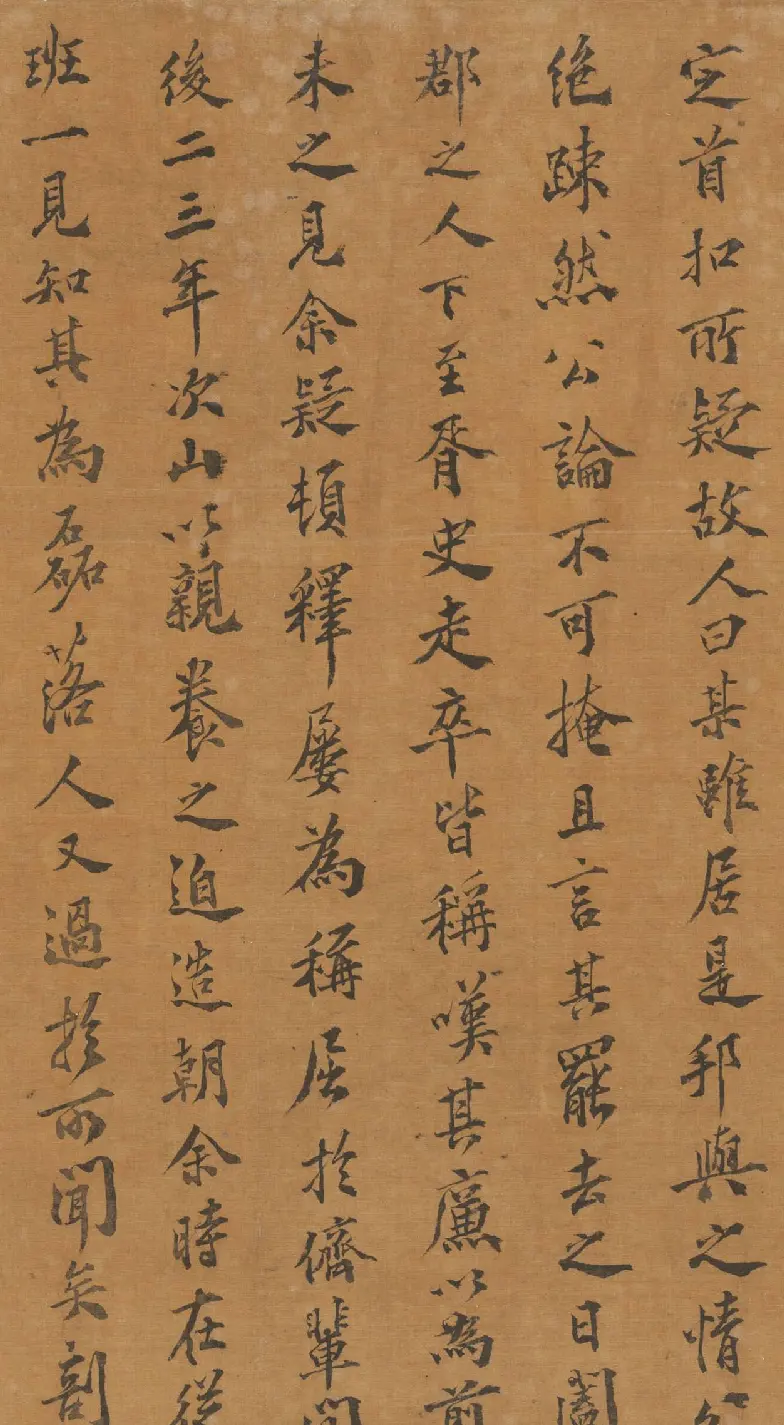 定首扣所疑故人曰某雖居是邦與之情分
絶踈然公論不可掩且言其罷去之日闔
郡之人下至胥史走卒皆稱嘆其廉以為前
未之見余疑頓釋屢為稱屈於儕輩間
後二三年次山以親養之迫造朝余時在從
班一見知其為磊落人又過於所聞矣剖